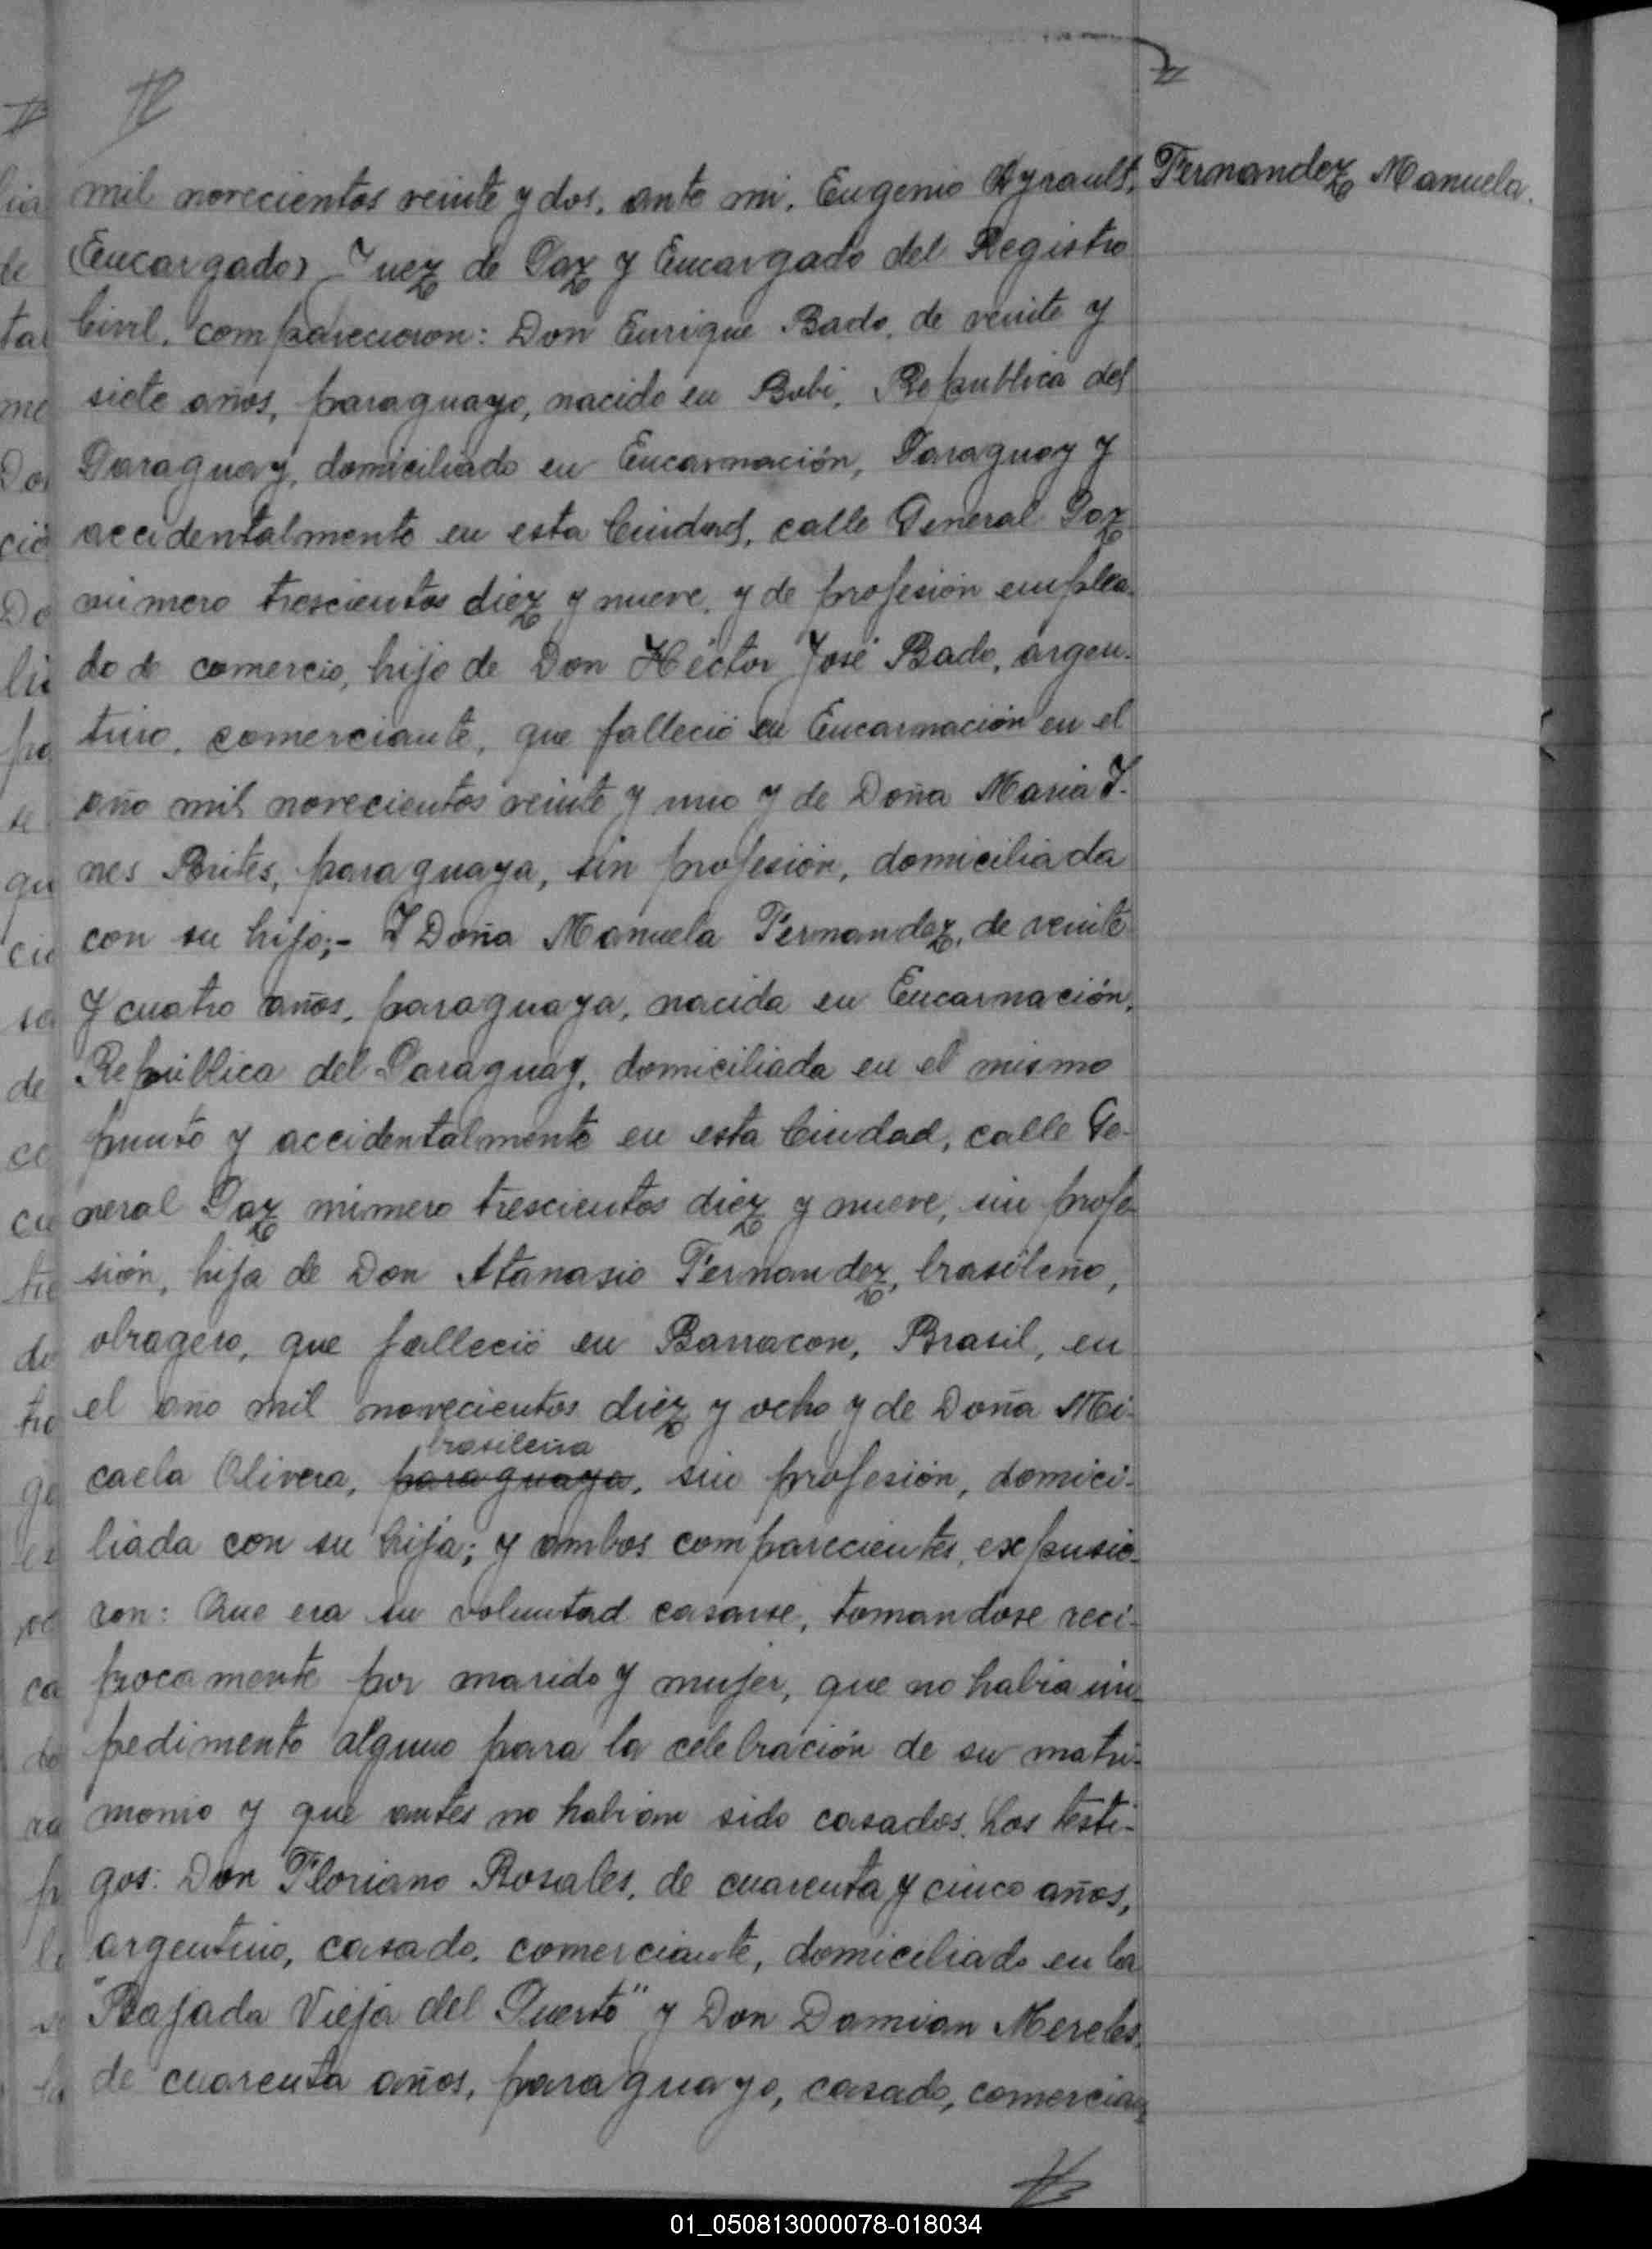 mil novecientos veinte y dos, ante mi, Eugenio Ayrault, Fernandez Manuela.
(Encargado) Juez de Paz y Encargado del Registro
Civil, comparecieron: Don Enrique Bado, de veinte y
siete años, paraguayo, nacido en Bobi, Republica del
Paraguay, domiciliado en Encarnación, Paraguay y
accidentalmente en esta Ciudad, calle General Paz
número trescientos diez y nueve, y de profesión emplea-
do de comercio, hijo de Don Héctor José Bado, argen-
tino, comerciante, que falleció en Encarnación en el
año mil novecientos veinte y uno y de Doña Maria I-
nes Brites, paraguaya, sin profesión, domiciliada
con su hijo;- Y Doña Manuela Fernandez, de veinte
y cuatro años, paraguaya, nacida en Encarnación,
República del Paraguay, domiciliada en el mismo
punto y accidentalmente en esta Ciudad, calle Ge-
neral Paz número trescientos diez y nueve, sin profe-
sión, hija de Don Atanasio Fernandez, brasileño,
obragero, que falleció en Barracon, Brasil, en
el año mil novecientos diez y ocho y de Doña Mi-
brasileña
caela Olivera, paraguaya, sin profesión, domici-
liada con su hija; y ambos comparecientes, expusie-
ron: Que era su voluntad casarse, tomandose reci-
procamente por marido y mujer, que no habia im-
pedimento alguno para la celebración de su matri-
monio y que antes no habian sido casados. Los testi-
gos: Don Floriano Rosales, de cuarenta y cinco años,
argentino, casado, comerciante, domiciliado en la
"Bajada Vieja del Puerto" y Don Damian Mereles,
de cuarenta años, paraguayo, casado, comercian-
01_050813000078-018034